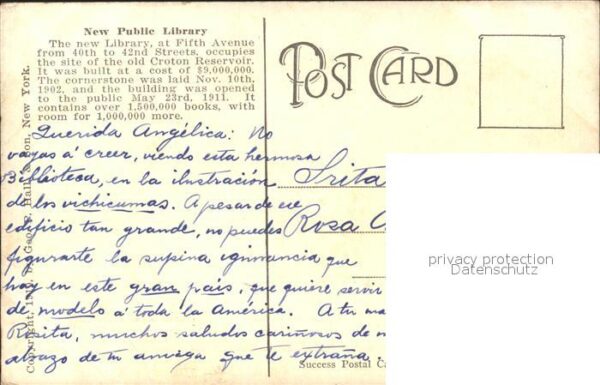 New Public Library
The new Library, at Fifth Avenue
from 40th to 42nd Streets, occupies
the site of the old Croton Reservoir.
It was built at a cost of $9,000,000.
The cornerstone was laid Nov. 10th,
1902, and the building was opened
to the public May 23rd, 1911. It
contains over 1,500,000 books, with
room for 1,000,000 more.
POST CARD
Querida Angélica: No
vayas á creer, viendo esta hermosa
Biblioteca, en la ilustración
de los vichicumas. A pesar de ese
edificio tan grande, no puedes
figurarte la supina ignorancia que
hay en este gran país, que quiere servir
de modelo á toda la América. A tu ma
Rosita, muchos saludos cariñosos de m
abrazo de tu amiga que te extraña.
Srita
Rosa
privacy protection
Datenschutz
Success Postal Ca
Copyright, New York.